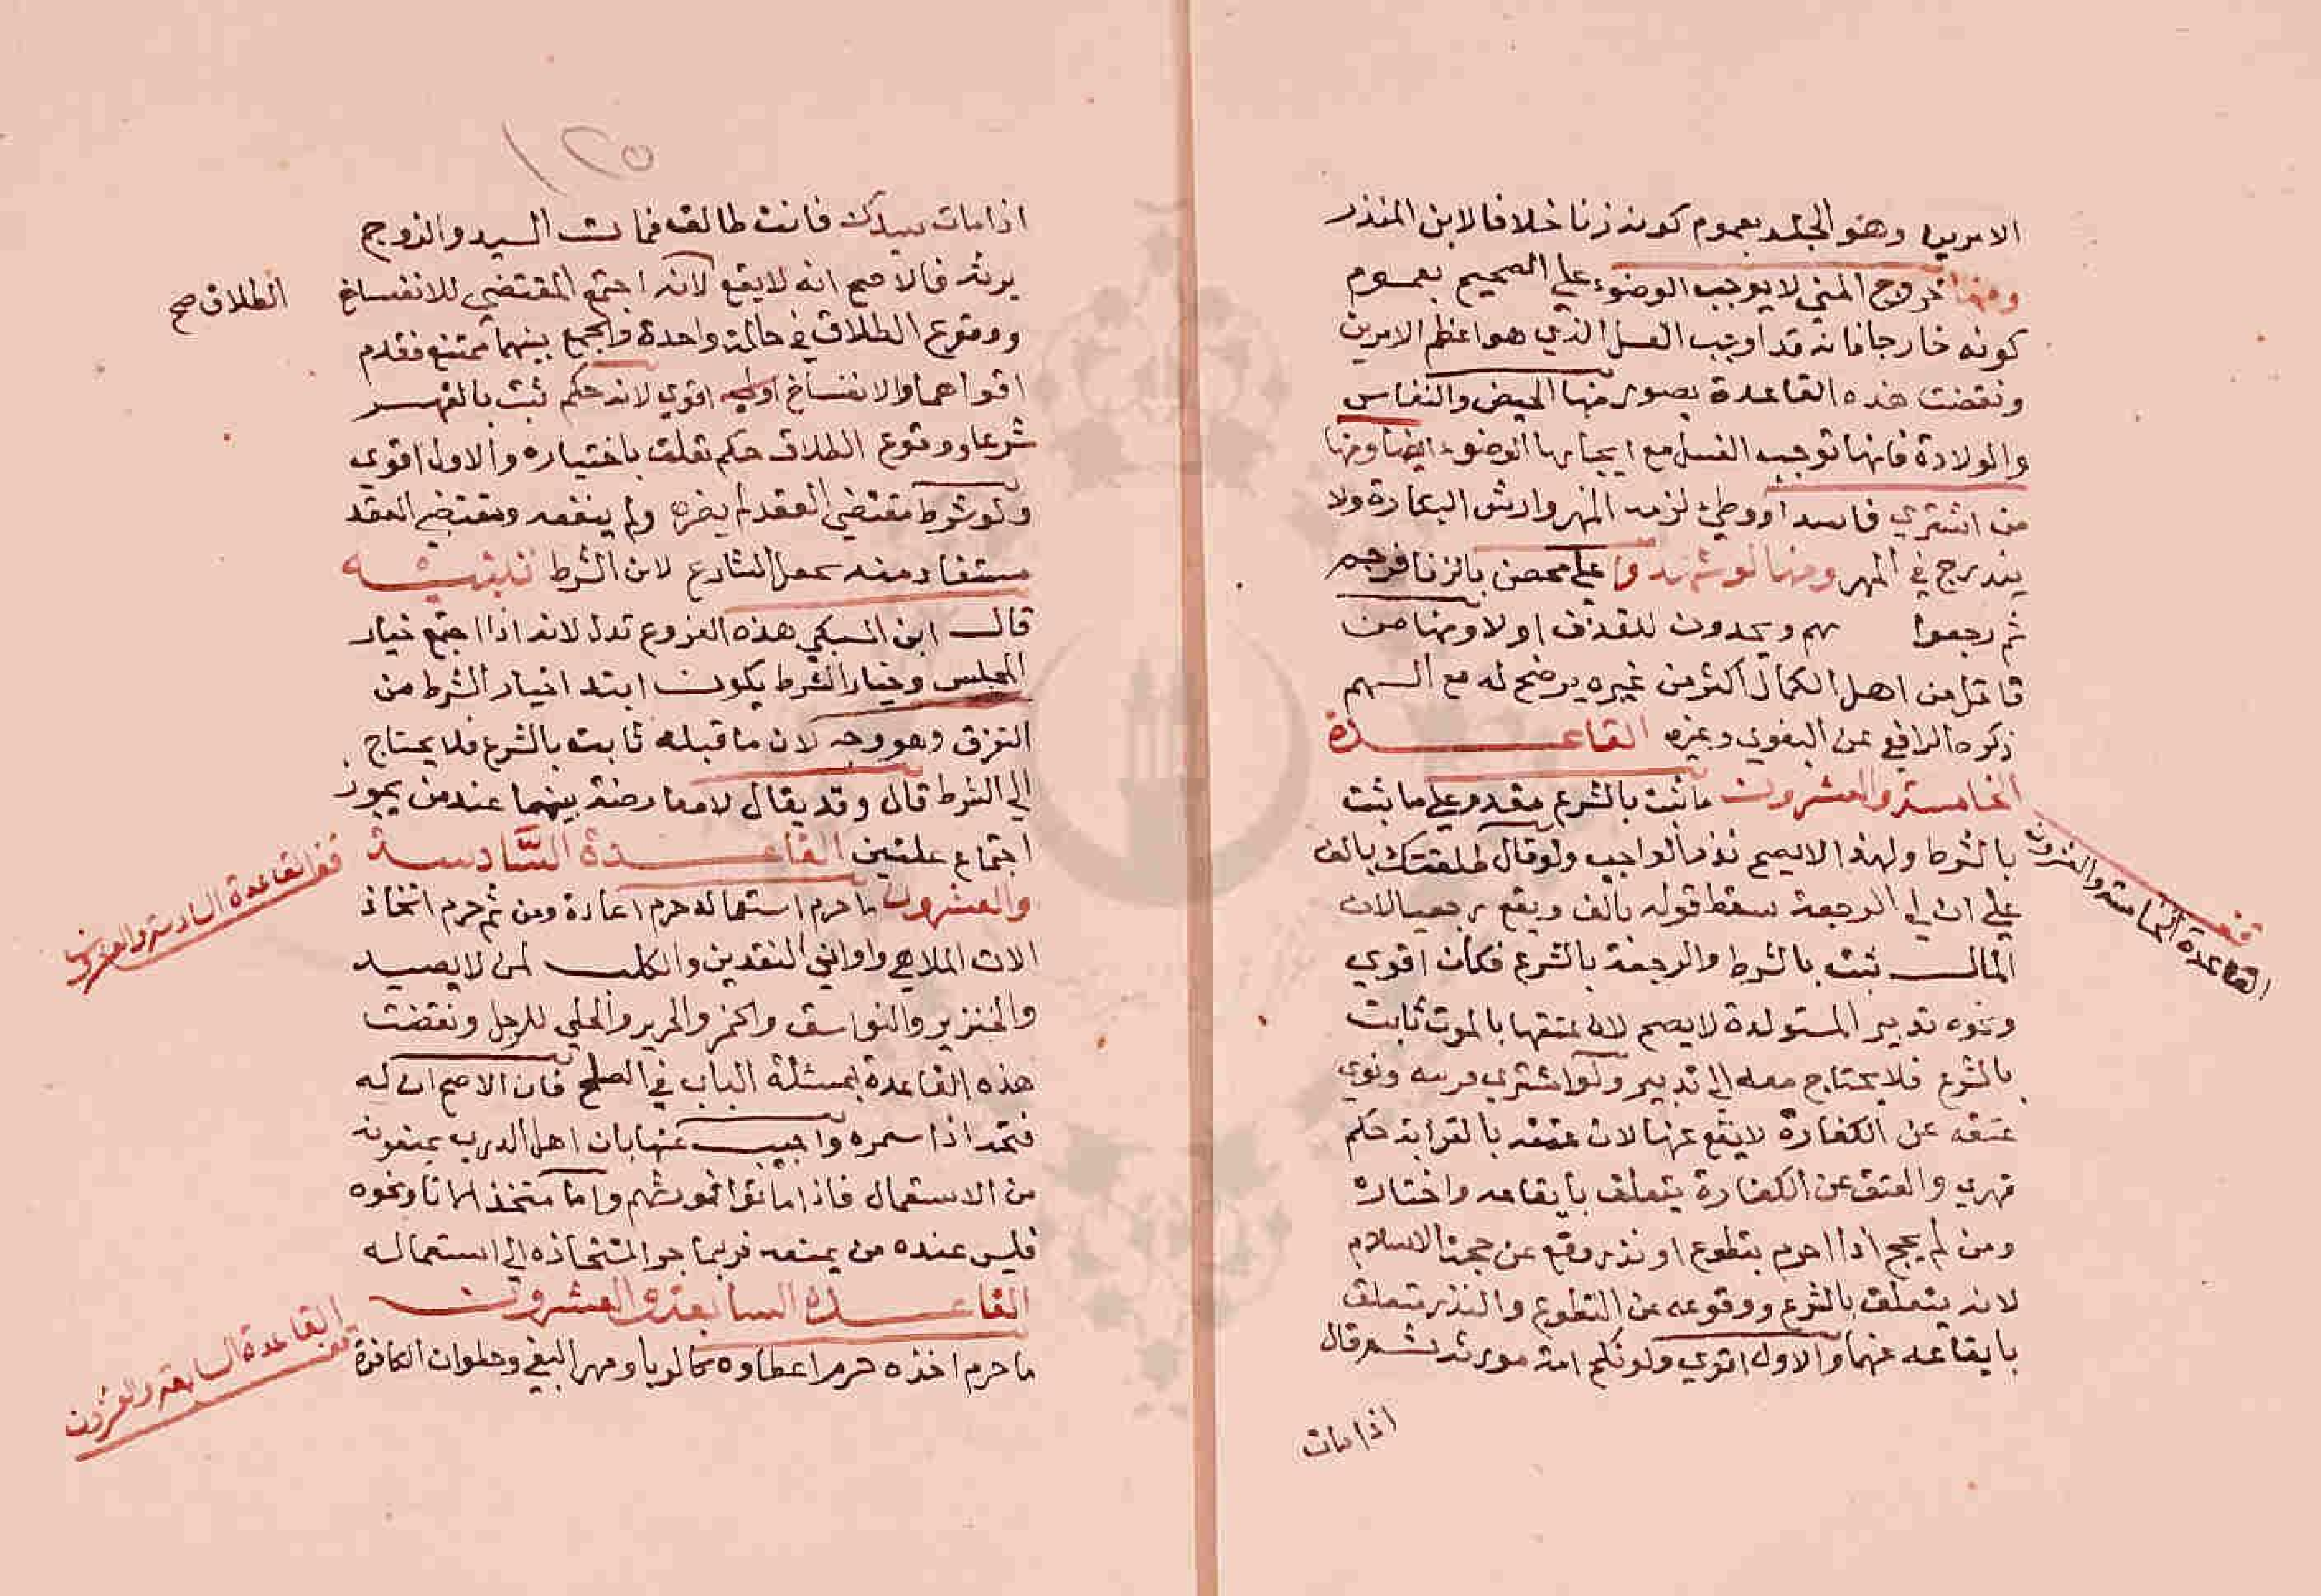 الامرين وهو الجلد بعموم كونه زنا خلافا لابن المنذر
ومنها خروج المني لا يوجب الوضوء على الصحيح بعموم
كونه خارجا فانه قد اوجب الغسل الذي هو اعظم الامرين
ونقضت هذه القاعدة بصور منها الحيض والنفاس
والولادة فانها توجب الغسل مع ايجابها الوضوء ايضا ومنها
من اشتري فاسدا ووطئ لزمه المهر وارش البكارة ولا
يندرج في المهر ومنها لو شهدوا علي محصن بالزنا فرجم
ثم رجعوا بهم ويحدون للقذف اولا ومنها من
قاتل من اهل الكمال اكثر من غيره يرضخ له مع السهم
ذكره الرافعي عن البغوي وغيره القاعـــدة
الخامسة والعشرون ما ثبت بالشرع مقدم علي ما ثبت
بالشرط ولهذا لا يصح نذر الواجب ولو قال طلقتك بالف
علي ان لي الرجعة سقط قوله بالف ويقع رجعيا لان
المال ثبت بالشرط والرجعة بالشرع فكان اقوي
ونحوه تدبير المستولدة لا يصح لان عتقها بالموت ثابت
بالشرع فلا يحتاج معه الي تدبير ولو اشتري قريبه ونوي
عتقه عن الكفارة لا يقع عنها لان عتقه بالقرابة حكم
قهري والعتق عن الكفارة يتعلق بايقاعه واختاره
ومن لم يحج اذا احرم بتطوع او نذر وقع عن حجة الاسلام
لانه يتعلق بالشرع ووقوعه عن التطوع والنذر متعلق
بايقاعه عنهما والاول اقوي ولو نكح امة مورثه ثم قال
اذا مات
القاعدة الخامسة والعشرون
قف
١٢٥
اذا مات سيدك فانت طالق فمات السيد والزوج
يرثه فالاصح انه لا يقع لانه اجتمع المقتضي للانفساخ
الطلاق صح
ووقوع الطلاق في حالة واحدة والجمع بينهما ممتنع فقدم
اقواهما والانفساخ اقوي لانه حكم ثبت بالقهر
شرعا ووقوع الطلاق حكم تعلق باختياره والاول اقوي
ولو شرط مقتضي العقد لم يضره ولم ينفعه ومقتضي العقد
مستفاد منه بجعل الشارع لا من الشرط تنبيـــه
قال ابن السبكي هذه الفروع تدل لانه اذا اجتمع خيار
المجلس وخيار الشرط يكون ابتدا خيار الشرط من
التفرق وهو وجه لان ما قبله ثابت بالشرع فلا يحتاج
الي الشرط قال وقد يقال لا معارضة بينهما عند من يجوز
اجتماع علتين القاعـــدة السادسة
قف القاعدة السادسة والعشرون
والعشرون ما حرم استعماله حرم اعادة ومن ثم حرم اتخاذ
الات الملاهي واواني النقدين والكلب لمن لا يصيد
والخنزير والفواسق والخمر والحرير والحلي للرجل ونقضت
هذه القاعدة بمسئلة الباب في الصلح فان الاصح ان له
فتحه اذا سمره واجيب عنها بان اهل الدرب يمنعونه
من الاستعمال فاذا ماتوا فمورثهم واما متخذ الانا ونحوه
فليس عنده من يمنعه فربما جر اتخاذه الي استعماله
القاعـــدة السابعة والعشرون
القاعدة السابعة والعشرون
قف
ما حرم اخذه حرم اعطاوه كالربا ومهر البغي وحلوان